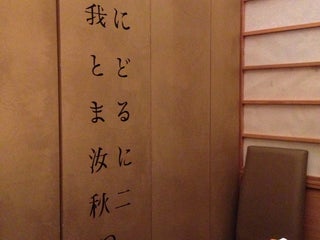 我に
とど
まる
汝に
秋二
つ